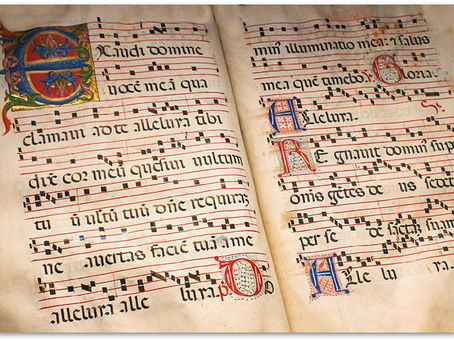 Exaudi domine
vocē meā qua
clamavi ad te alleluya tibi
dixit cor meū quesivi vultum
tuū vultū tuū dn̄e requirā
ne avertas faciē tuā a me
alleluya alle luya. p̄s Do
illuminatio mea: et salus
mea quē timebo. Gloria.
Alleluya.
Regnavit domin' sup
omēs gētes de us sedet
per se dē sāctā suā
Alle lu ya.